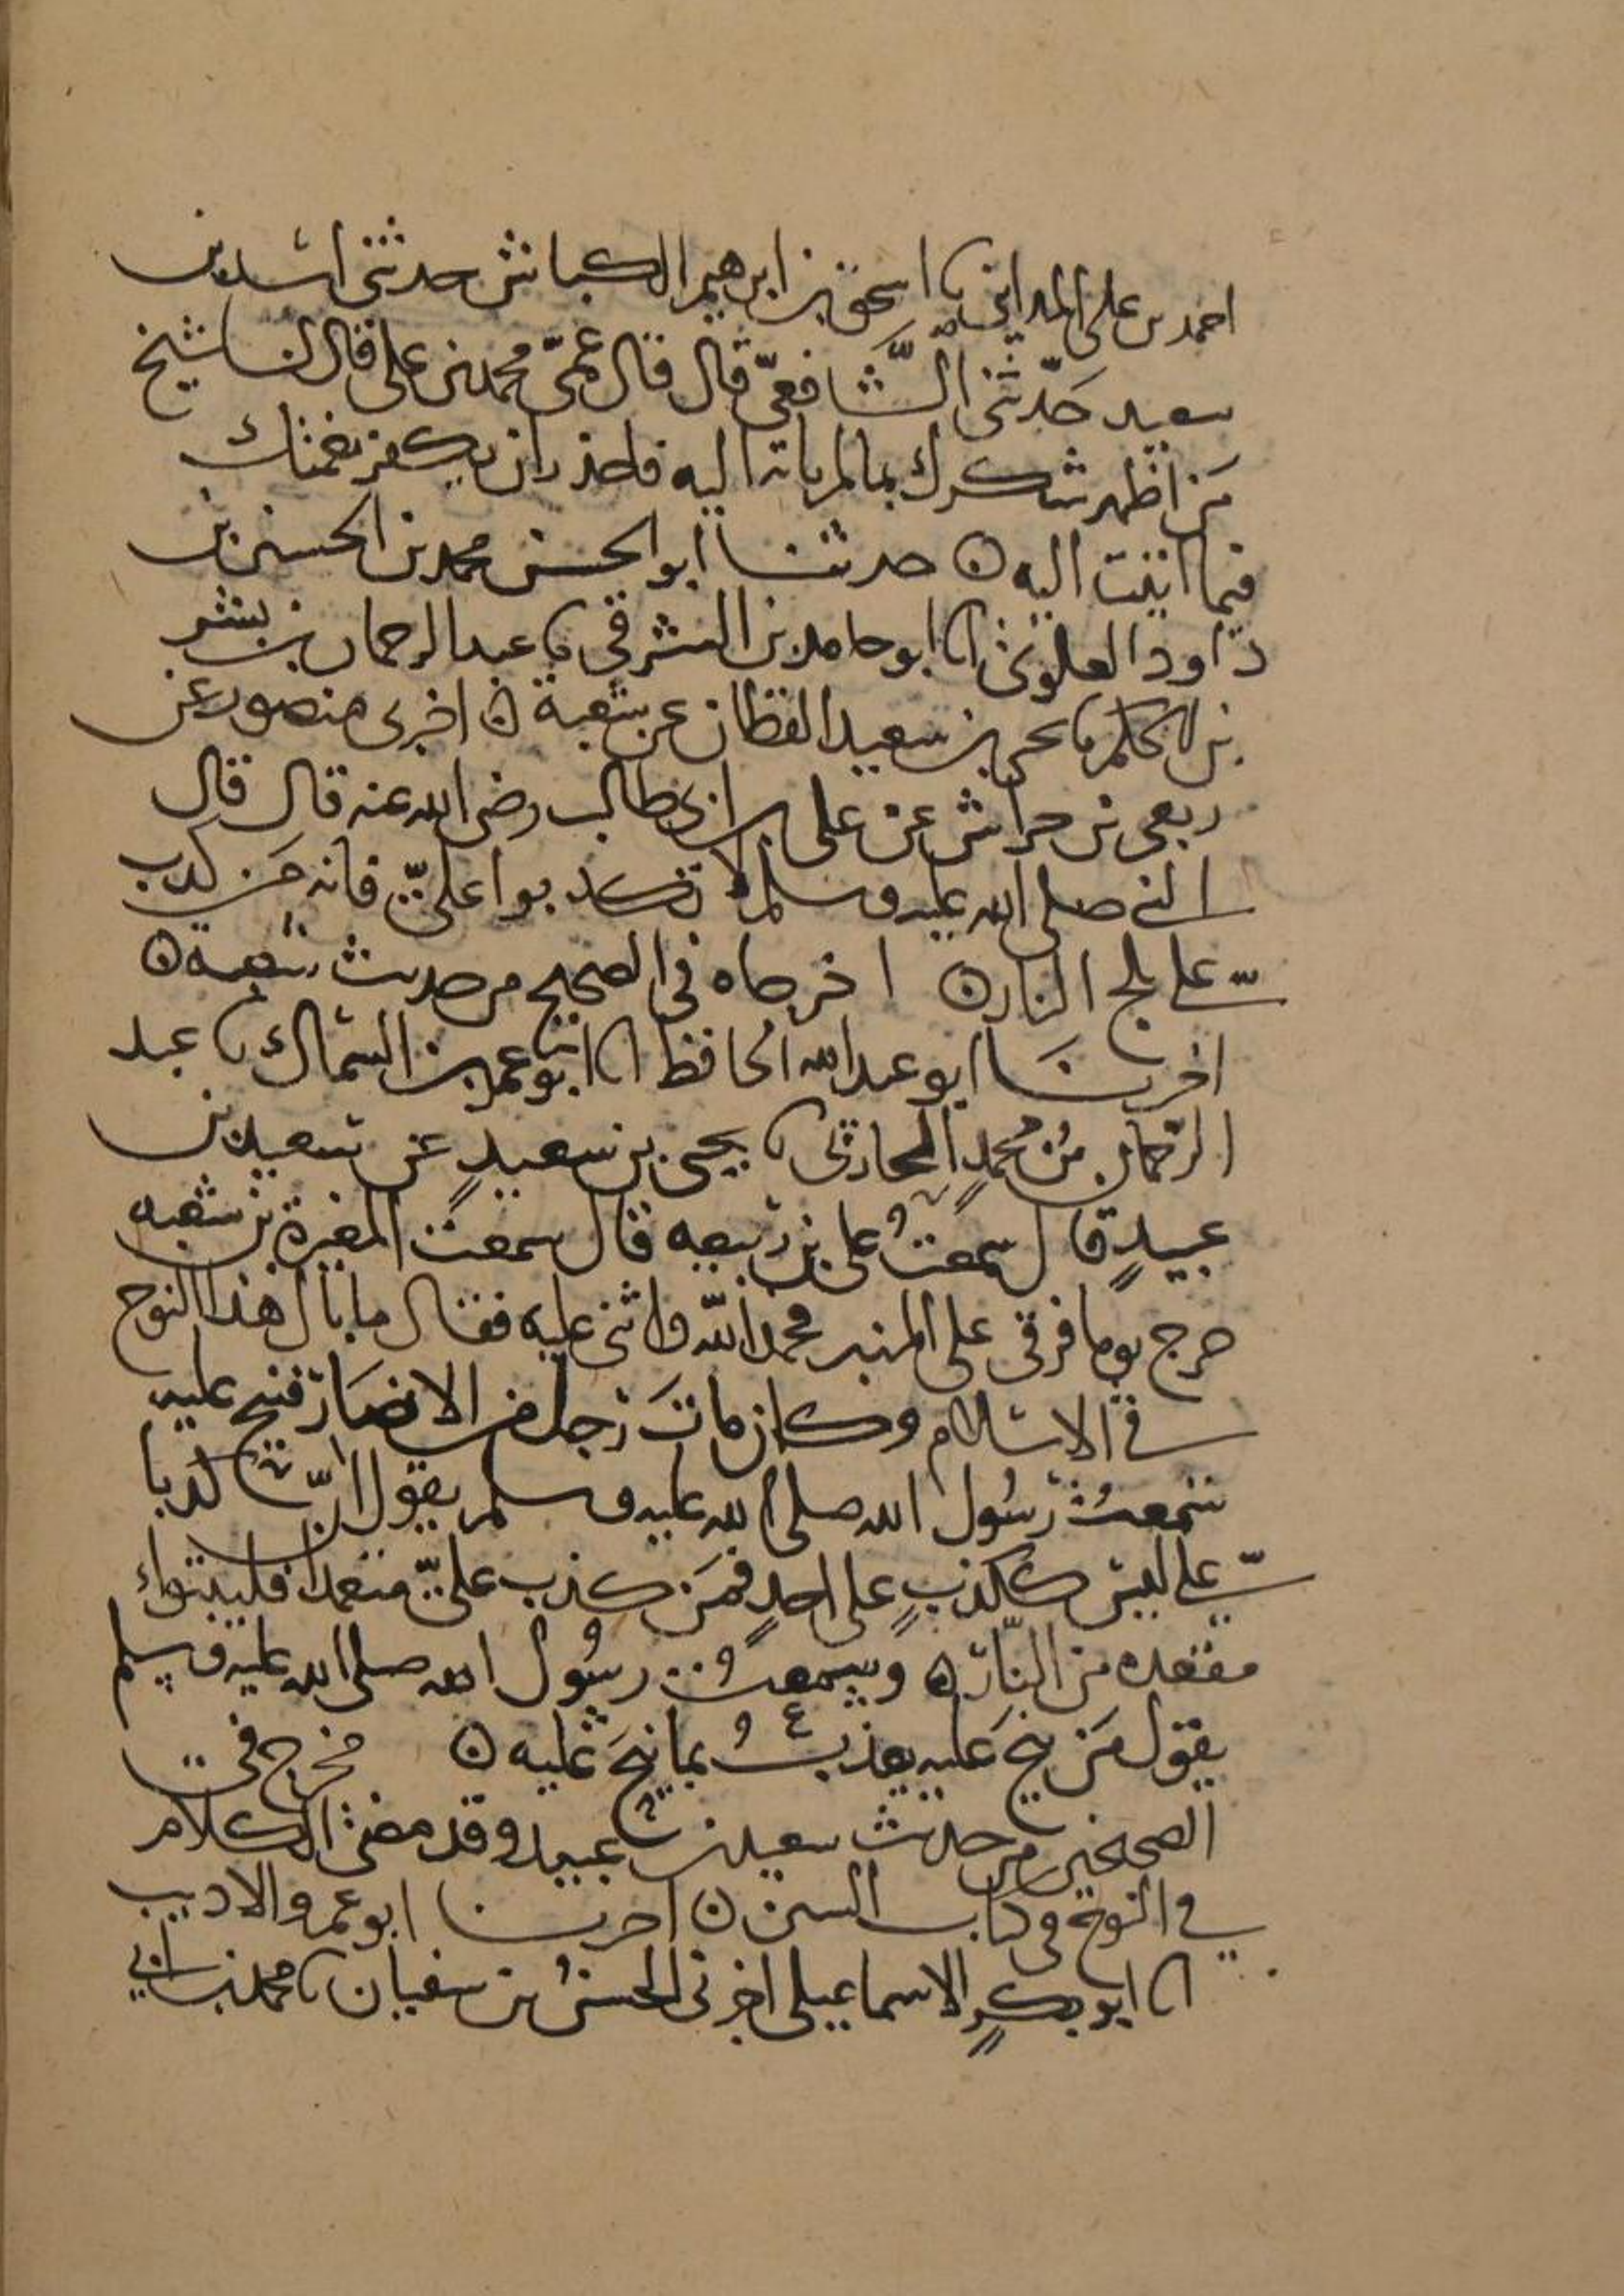 احمد بن على المدايني ىا اسحق بن ابرهيم الكباش حدثنى اسد بن
سعيد حدّثنى الشَّافعىّ قال قال عمىّ محمد بن على قال لنا شيخ
مَن اظهر شكرك بما لم ياته اليه فاحذر ان يكفر نعمتك
فيما اتيت اليه ه حدثنا ابو الحسن محمد بن الحسين بن
داود العلوى انا ابو حامد بن الشرقي ىا عبد الرحمان بن بشر
بن الحكم ىا يحيى بن سعيد القطان عن شعبة ه اخبرنى منصور عن
ربعى بن حراش عن على بن ابى طالب رضى الله عنه قال قال
النبى صلى الله عليه وسلم لا تكذبوا علىّ فانه مَن كذب
علىّ يلج النار ه اخرجاه فى الصحيح من حديث شعبه ه
اخبرنا ابو عبد الله الحافظ انا ابو عمرو بن السماك ىا عبد
الرحمان بن محمدٍ الحارثى ىا يحيى بن سعيدٍ عن سعيد بن
عبيدٍ قال سمعتُ على بن ربيعه قال سمعت المغيرة بن شعبه
خرج يوما فرقى على المنبر فحمد الله واثنى عليه فقال ما بال هذا النوح
فى الاسلام وكان ماتَ رجل من الانصار فنيح عليه
سمعتُ رسُول الله صلى الله عليه وسلم يقول انّ كذبا
علىّ ليس ككذبٍ على احدٍ فمَن كذب علىّ متعمدا فليتبواء
مقعده من النّار ه وسمعتُ رسُول الله صلى الله عليه وسلم
يقول مَن نيح عَليه يعذبُ بما نيحَ عليه ه مخرج فى
الصحيحين من حديث سعيد بن عبيد وقد مضى الكلام
فى النوح فى كتاب السنن ه اخبرنا ابو عمرو الاديب
انا ابو بكرٍ الاسماعيلى اخبرنى الحسنُ بن سفيان ىا محمد بن ابى